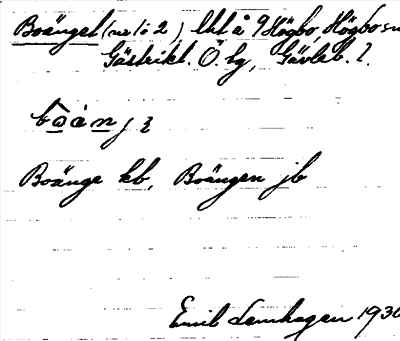 Boänget (nr lö 2) lht å 9 Högbo, Högbo sn
Gästrikl. Ö. tg, Gävleb. l.
Boänge kb, Boängen jb
Emil Lennhagen 1930